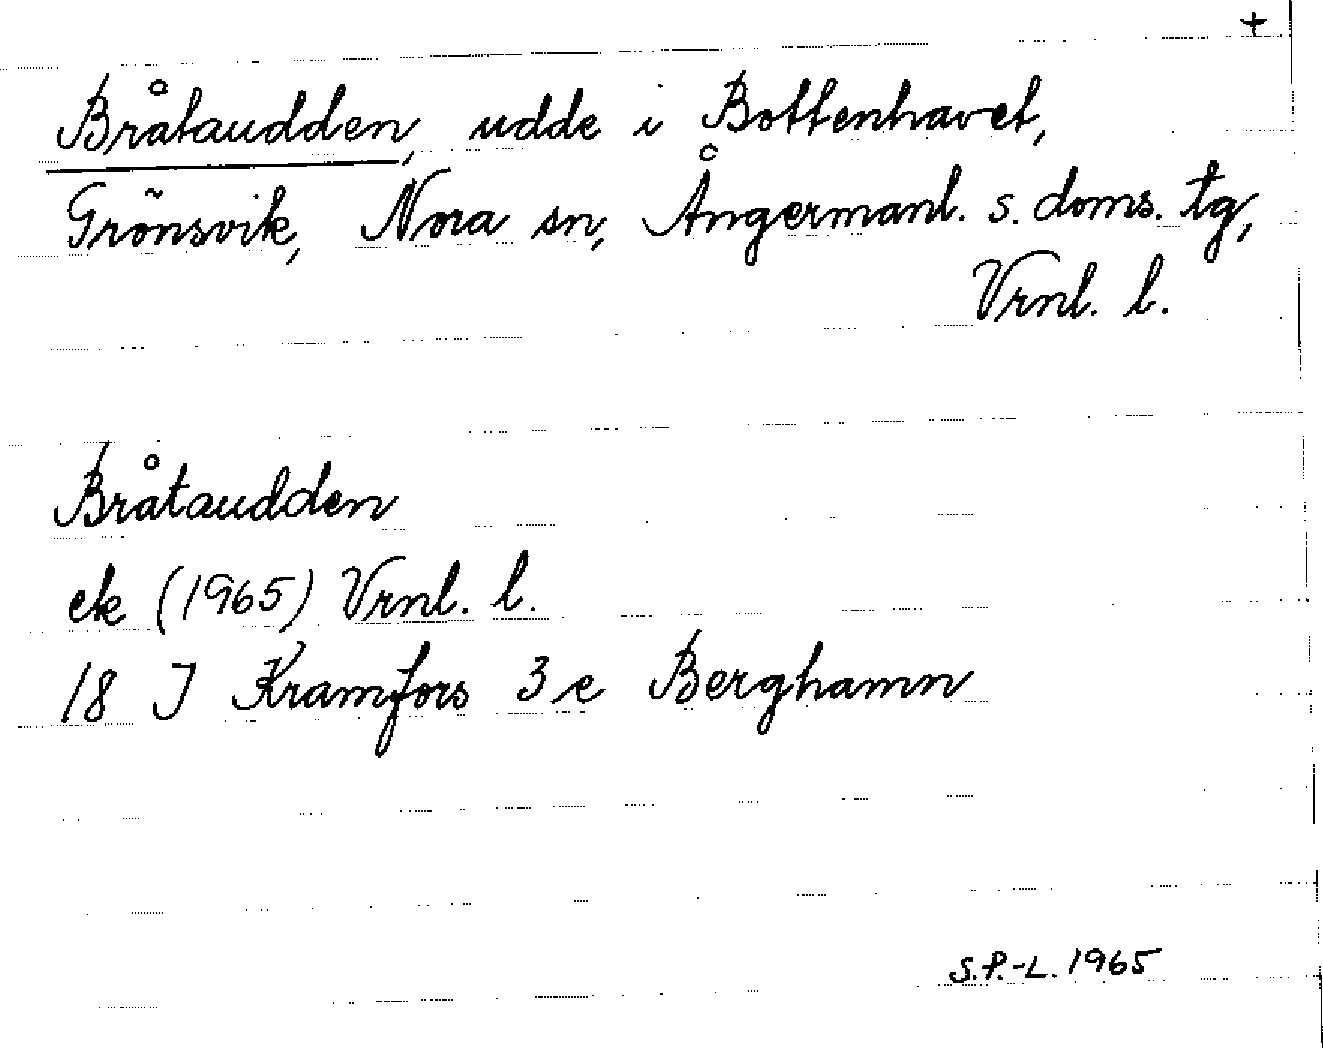 +
Bråtaudden, udde i Bottenhavet,
Grönsvik, Nora sn, Ångermanl. s. doms. tg,
Vrnl. l.
Bråtaudden
ek (1965) Vrnl. l.
18 I Kramfors 3 e Berghamn
S.P.-L. 1965